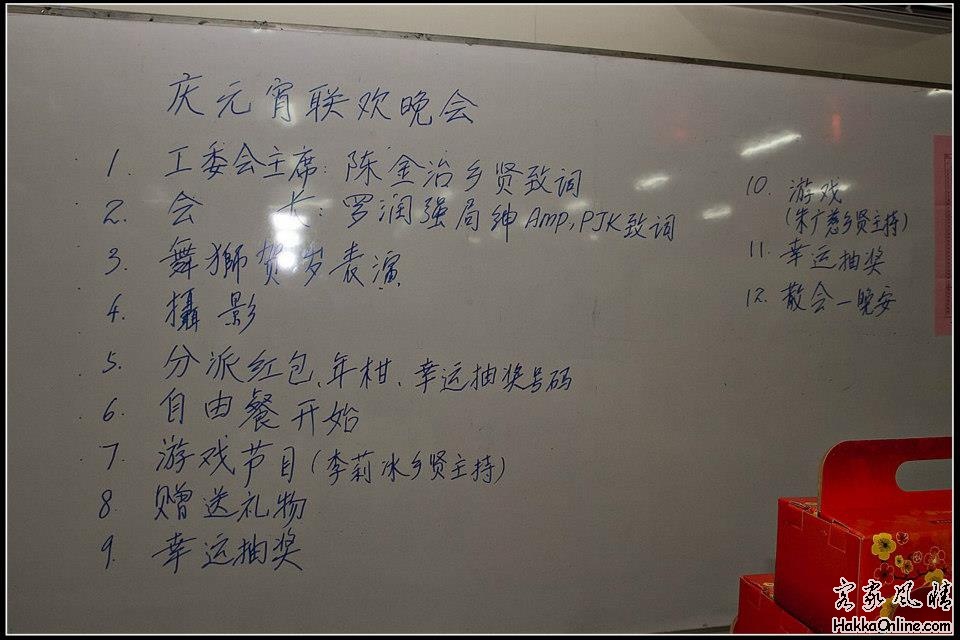 庆元宵联欢晚会
1. 工委会主席: 陈金治乡贤致词
2. 会 长: 罗润强局绅AMP, PJK致词
3. 舞獅贺岁表演
4. 攝影
5. 分派红包、年柑、幸运抽奖号码
6. 自由餐开始
7. 游戏节目(李莉冰乡贤主持)
8. 赠送礼物
9. 幸运抽奖
10. 游戏
(朱广慈乡贤主持)
11. 幸运抽奖
12. 散会—晚安
客家风情
HakkaOnline.com